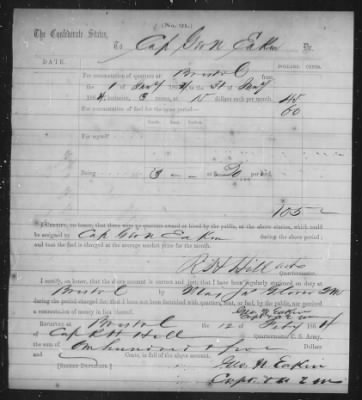 (No. 22.)
The Confederate States,
To Cap Geo N Eakin Dr.
DOLLARS. CENTS.
For commutation of quarters at Bristol from
the 1 of Jany 1864 to 31 of Jany
1864, inclusive, 3 rooms, at 15 dollars each per month, 45
For commutation of fuel for the same period: 60
For myself
Being 3 at 20 per cord.
105
I certify, on honor, that there were no quarters owned or hired by the public, at the above station, which could
be assigned to Cap Geo N Eakin during the above period;
and that the fuel is charged at the average market price for the month.
R H Hill
Quartermaster.
I certify, on honor, that the above account is correct and just; that I have been regularly stationed on duty at
Bristol by Maj Jas Glover QM
during the period charged for; that I have not been furnished with quarters, rent, or fuel, by the public, nor received
a commutation of money in lieu thereof. Geo. N Eakin
Received at Bristol the 12 of Feby 1864
of Cap R H Hill Quartermaster C. S. Army,
the sum of One hundred & five Dollars
and Cents, in full of the above account.
[Signed Duplicates.] Geo. N Eakin
Capt & A Q M